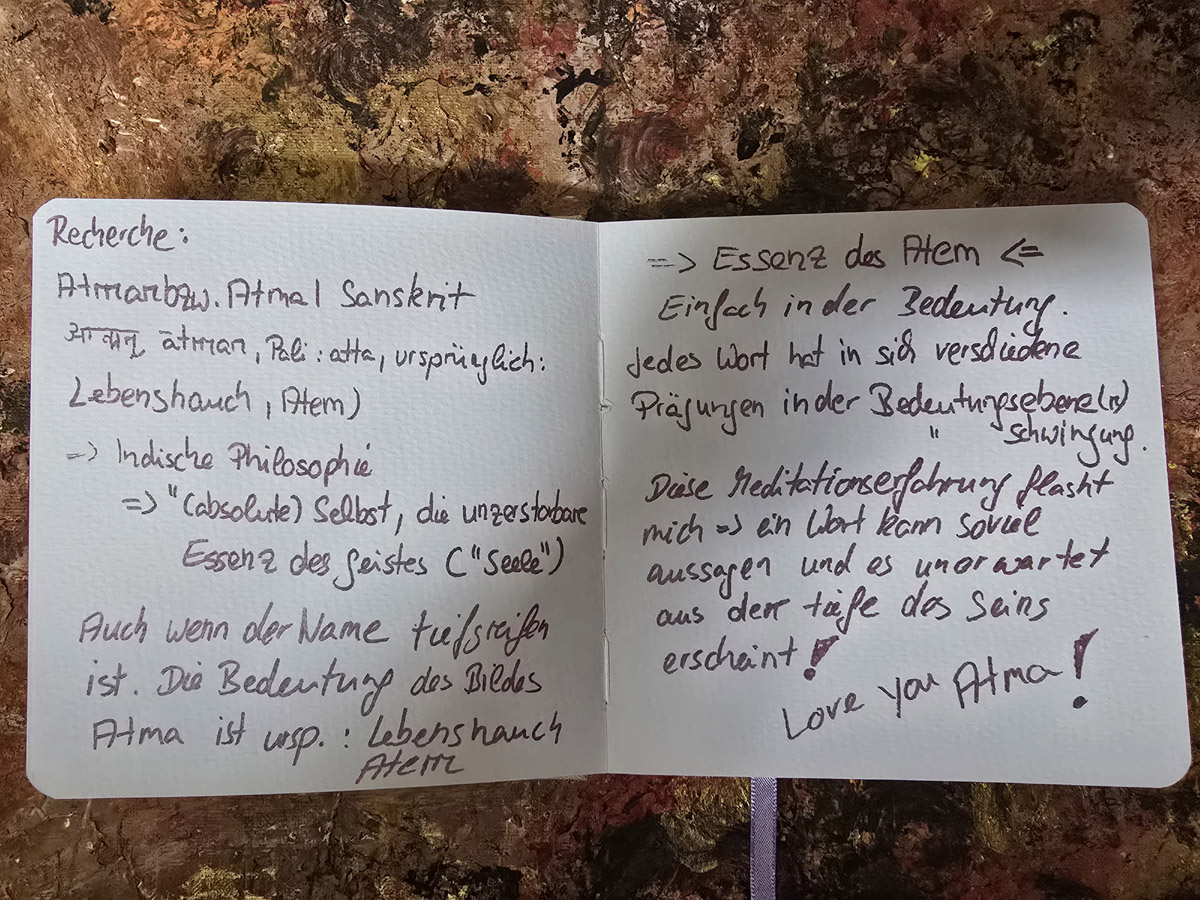 Recherche:
Atmanbzw. Atma | Sanskrit
ātman, Pali: atta, ursprünglich:
Lebenshauch, Atem)
-> Indische Philosophie
=> "(absolute) Selbst, die unzerstorbare
Essenz des Geistes ("Seele")
Auch wenn der Name tiefgreifen
ist. Die Bedeutung des Bildes
Atma ist ursp.: Lebenshauch
Atem
=> Essenz des Atem <=
Einfach in der Bedeutung.
Jedes Wort hat in sich verschiedene
Prägungen in der Bedeutungsebene(n)
" schwingung.
Diese Meditationserfahrung flasht
mich => ein Wort kann soviel
aussagen und es unerwartet
aus der tiefe des Seins
erscheint!
Love you Atma!